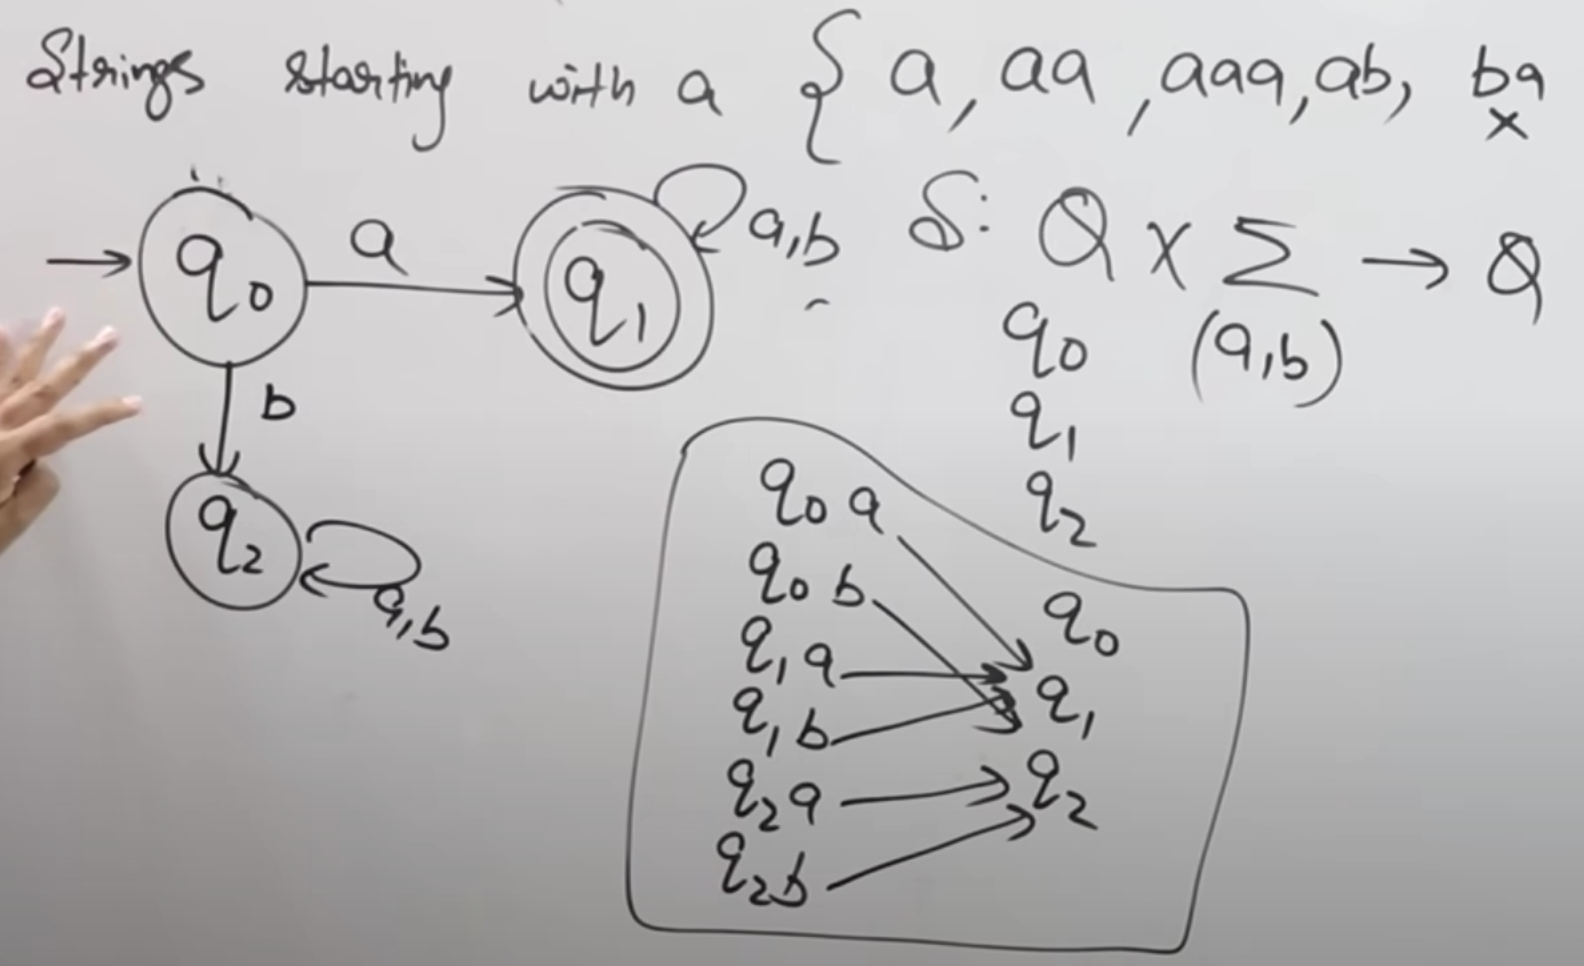 Strings starting with a { a, aa, aaa, ab, ba
x
δ: Q X Σ → Q
q0 a q1 a,b
q0 (a,b)
q1
q2
b
q2 a,b
q0 a
q0 b
q1 a
q1 b
q2 a
q2 b
q0
q1
q2